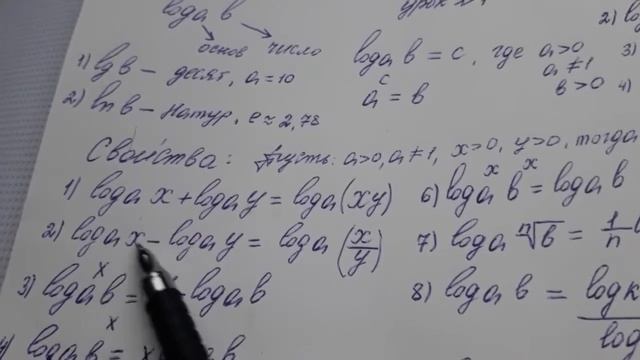 log_a b
основ число
1) lg b – десят, a=10
2) ln b – натур, e≈2,78
урок
log_a b = c, где a>0
a≠1
b>0
a^c = b
2)
3)
4)
Свойства: Пусть: a>0, a≠1, x>0, y>0, тогда
1) log_a x + log_a y = log_a (xy)
2) log_a x – log_a y = log_a (x/y)
3) log_a b^x = log_a b
4) log_a b = x
6) log_a^x b^x = log_a b
7) log_a ⁿ√b = 1/n
8) log_a b = log k / log